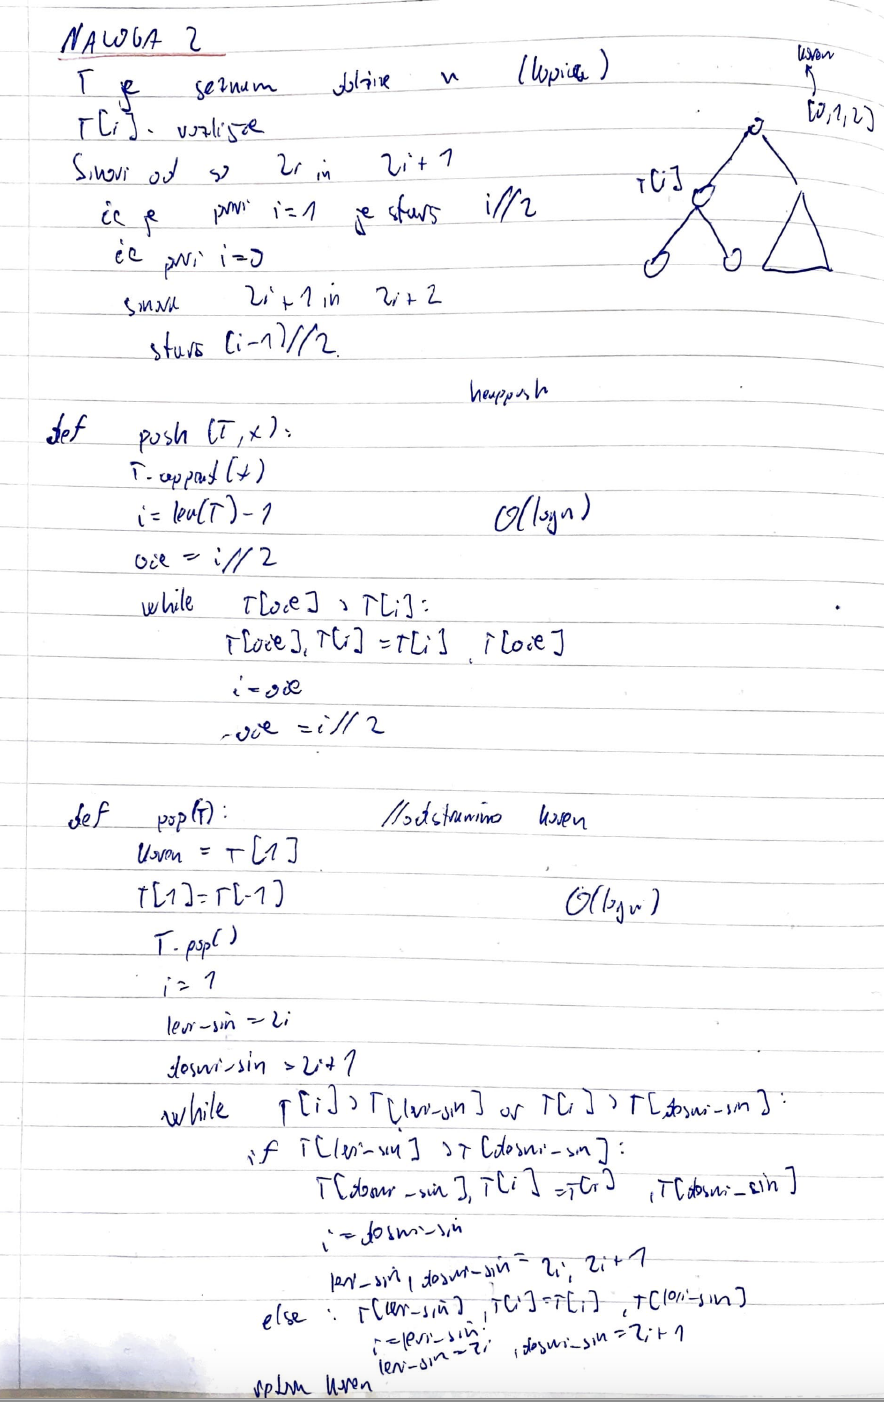 NALOGA 2
T je seznam dolžine n (kopica)
T[i]. vozlišče
Sinovi od so 2i in 2i+1
če je prvi i=1 je starš i//2
če prvi i=0
sinova 2i+1 in 2i+2
starš (i-1)//2.
koren
[0,1,2]
T[i]
heappush
def push (T,x):
T.append(x)
i = len(T)-1
O(log n)
oče = i//2
while T[oče] > T[i]:
T[oče], T[i] = T[i], T[oče]
i = oče
oče = i//2
def pop(T): //odstranimo koren
koren = T[1]
T[1]=T[-1]
O(log n)
T.pop()
i = 1
levi-sin = 2i
desni-sin = 2i+1
while T[i] > T[levi-sin] or T[i] > T[desni-sin]:
if T[levi-sin] > T[desni-sin]:
T[desni-sin], T[i] = T[i], T[desni_sin]
i = desni-sin
levi-sin, desni-sin = 2i, 2i+1
else : T[levi-sin], T[i]=T[i], T[levi-sin]
i = levi-sin
levi-sin = 2i, desni-sin = 2i+1
return koren